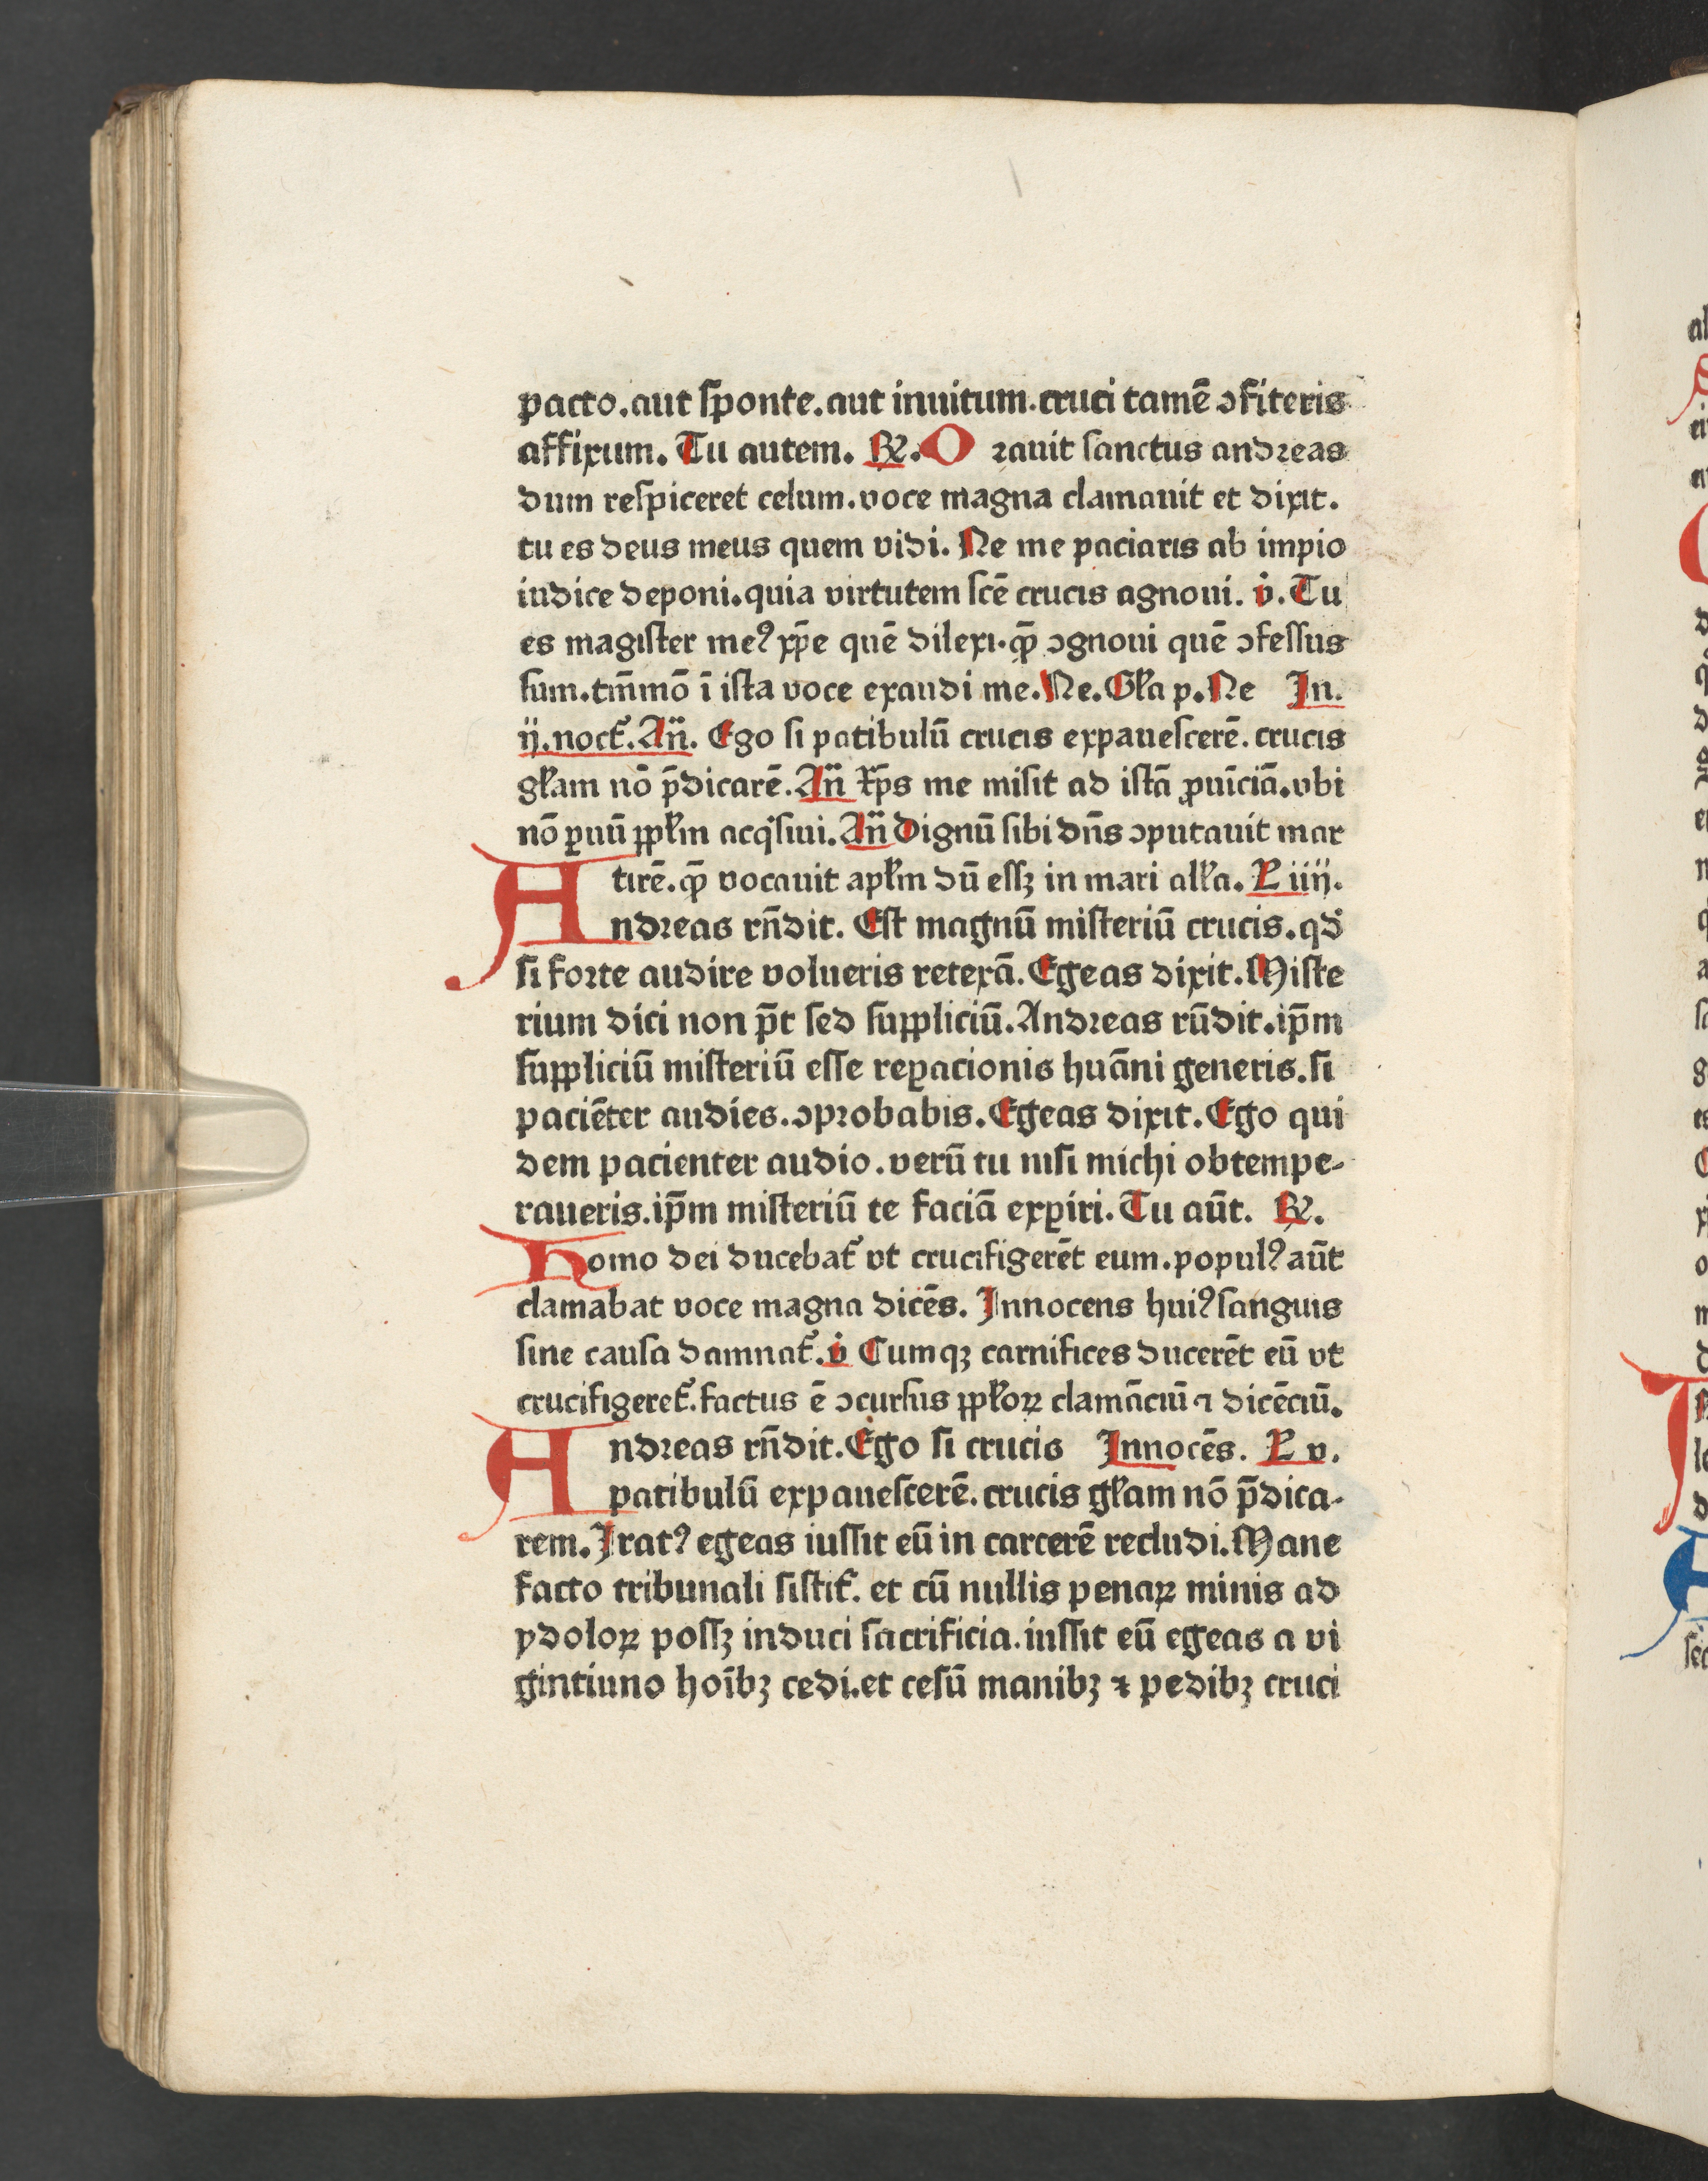 pacto.aut ſponte.aut inuitum.cruci tamē ↄfiteris
affixum. Tu autem. ℟. O ꝛauit ſanctus andꝛeas
dum reſpiceret celum.voce magna clamauit et dixit.
tu es deus meus quem vidi. Ne me paciaris ab impio
iudice deponi.quia virtutem ſcē crucis agnoui. v̇. Tu
es magiſter meꝰ xp̄e quē dilexi.qꝫ̄ ↄgnoui quē ↄfeſſus
ſum.tm̄mō ī iſta voce exaudi me.Ne.Gła p.Ne In.
ij.noct᷑.An̄. Ego ſi patibulū crucis expaueſcerē.crucis
głam nō p̄dicarē.An̄ Xp̄s me miſit ad iſtā ꝓuīciā.vbi
nō ꝑuū ppłm acqͥſiui.An̄ Dignū ſibi dn̄s ↄputauit mar
tirē.q̄ vocauit apłm dū eſſꝫ in mari alła. L iiij.
Andꝛeas rn̄dit. Eſt magnū miſteriū crucis.qd̄
ſi foꝛte audire volueris retexā. Egeas dixit. Miſte
rium dici non p̄t ſed ſuppliciū.Andꝛeas rn̄dit.ip̄m
ſuppliciū miſteriū eſſe reꝑacionis huāni generis.ſi
paciēter audies.ↄpꝛobabis.Egeas dixit.Ego qui
dem pacienter audio.verū tu niſi michi obtempe⸗
raueris.ip̄m miſteriū te faciā exꝑiri.Tu aūt. ℟.
Homo dei ducebat᷑ vt crucifigerēt eum.populꝰ aūt
clamabat voce magna dicēs. Innocens huiꝰ ſanguis
ſine cauſa damnat᷑.v̇ Cumqꝫ carnifices ducerēt eū vt
crucifigeret᷑.factus ē ↄcurſus ppłoꝝ clamāciū ⁊ dicēciū.
Andꝛeas rn̄dit.Ego ſi crucis Innocēs. L v.
patibulū expaueſcerē.crucis głam nō p̄dica⸗
rem.Iratꝰ egeas iuſſit eū in carcerē recludi.Mane
facto tribunali ſiſtit᷑. et cū nullis penaꝝ minis ad
ydoloꝝ poſſꝫ induci ſacrificia.iuſſit eū egeas a vi
gintiuno hoībꝫ cedi.et ceſū manibꝫ ⁊ pedibꝫ cruci